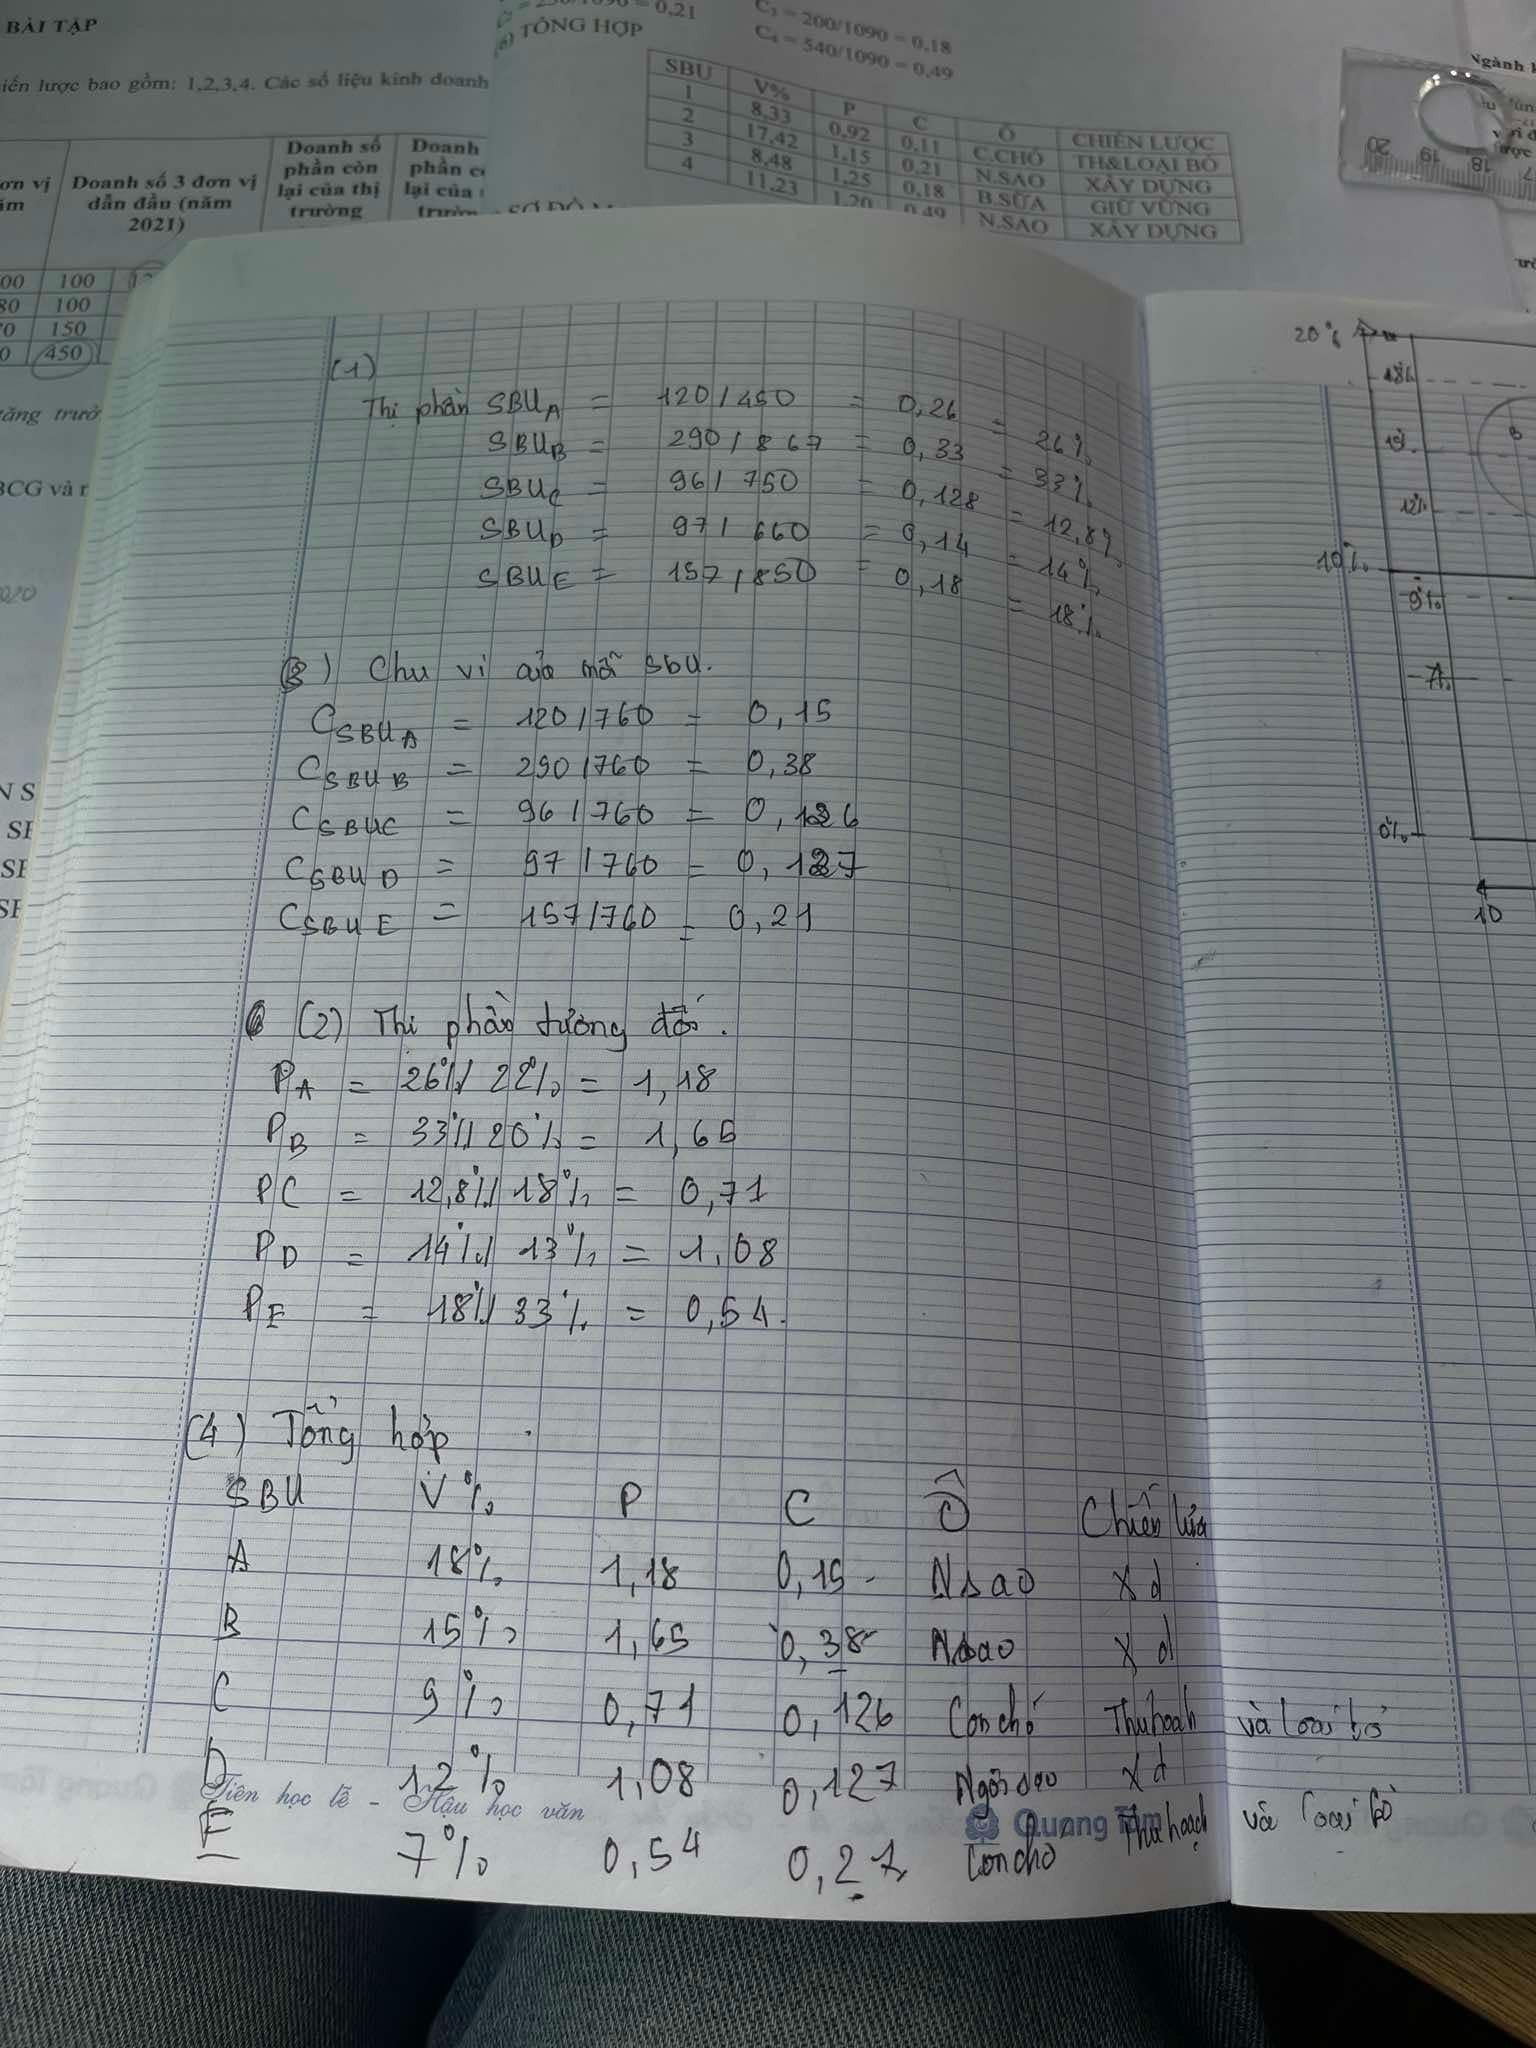 BÀI TẬP
iến lược bao gồm: 1,2,3,4. Các số liệu kinh doanh
Doanh số 3 đơn vị dẫn đầu (năm 2021)
Doanh số phần còn lại của thị trường
Doanh
100
100
150
450
BCG và
= 0,21
C₃ = 200/1090 = 0,18
C₄ = 540/1090 = 0,49
(6) TỔNG HỢP
SBU V% P C Ô CHIẾN LƯỢC
1 8,33 0,92 0,11 C.CHÓ TH&LOẠI BỎ
2 17,42 1,15 0,21 N.SAO XÂY DỰNG
3 8,48 1,25 0,18 B.SỮA GIỮ VỮNG
4 11,23 1,20 0,49 N.SAO XÂY DỰNG
SƠ ĐỒ
Ngành
20 19 18 17
(1)
Thị phần SBU_A = 120/450 = 0,26 = 26%
SBU_B = 290/867 = 0,33 = 33%
SBU_C = 96/750 = 0,128 = 12,8%
SBU_D = 97/660 = 0,14 = 14%
SBU_E = 157/850 = 0,18 = 18%
(3) Chu vi của mỗi SBU.
C_SBU_A = 120/760 = 0,15
C_SBU_B = 290/760 = 0,38
C_SBU_C = 96/760 = 0,126
C_SBU_D = 97/760 = 0,127
C_SBU_E = 157/760 = 0,21
(2) Thị phần tương đối.
P_A = 26% / 22% = 1,18
P_B = 33% / 20% = 1,65
PC = 12,8% / 18% = 0,71
P_D = 14% / 13% = 1,08
P_E = 18% / 33% = 0,54.
(4) Tổng hợp
SBU V% P C Ô Chiến lược
A 18% 1,18 0,15 Nsao Xd
B 15% 1,65 0,38 Nsao Xd
C 9% 0,71 0,126 Con chó Thu hoạch và loại bỏ
D 12% 1,08 0,127 Ngôi sao Xd
Tiên học lễ - Hậu học văn
Quang Tâm
E 7% 0,54 0,21 Con chó Thu hoạch và loại bỏ
20%
18%
15%
B
12%
10%
9%
0%
10